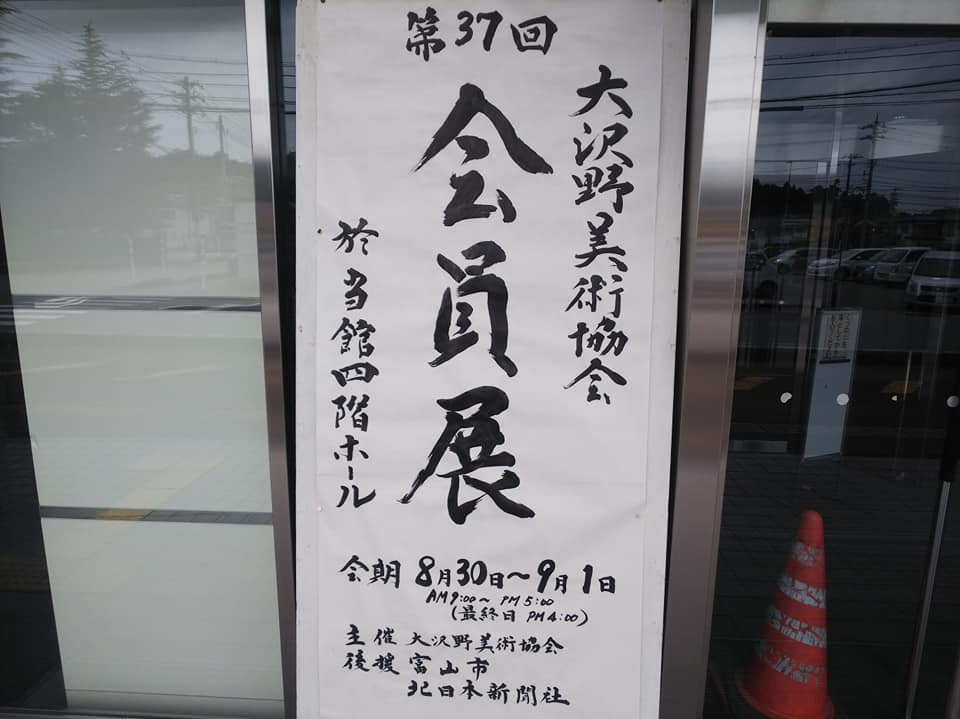 第37回
大沢野美術協会
会員展
於当館四階ホール
会期 8月30日~9月1日
AM9:00~ PM5:00
(最終日 PM4:00)
主催 大沢野美術協会
後援 富山市
北日本新聞社